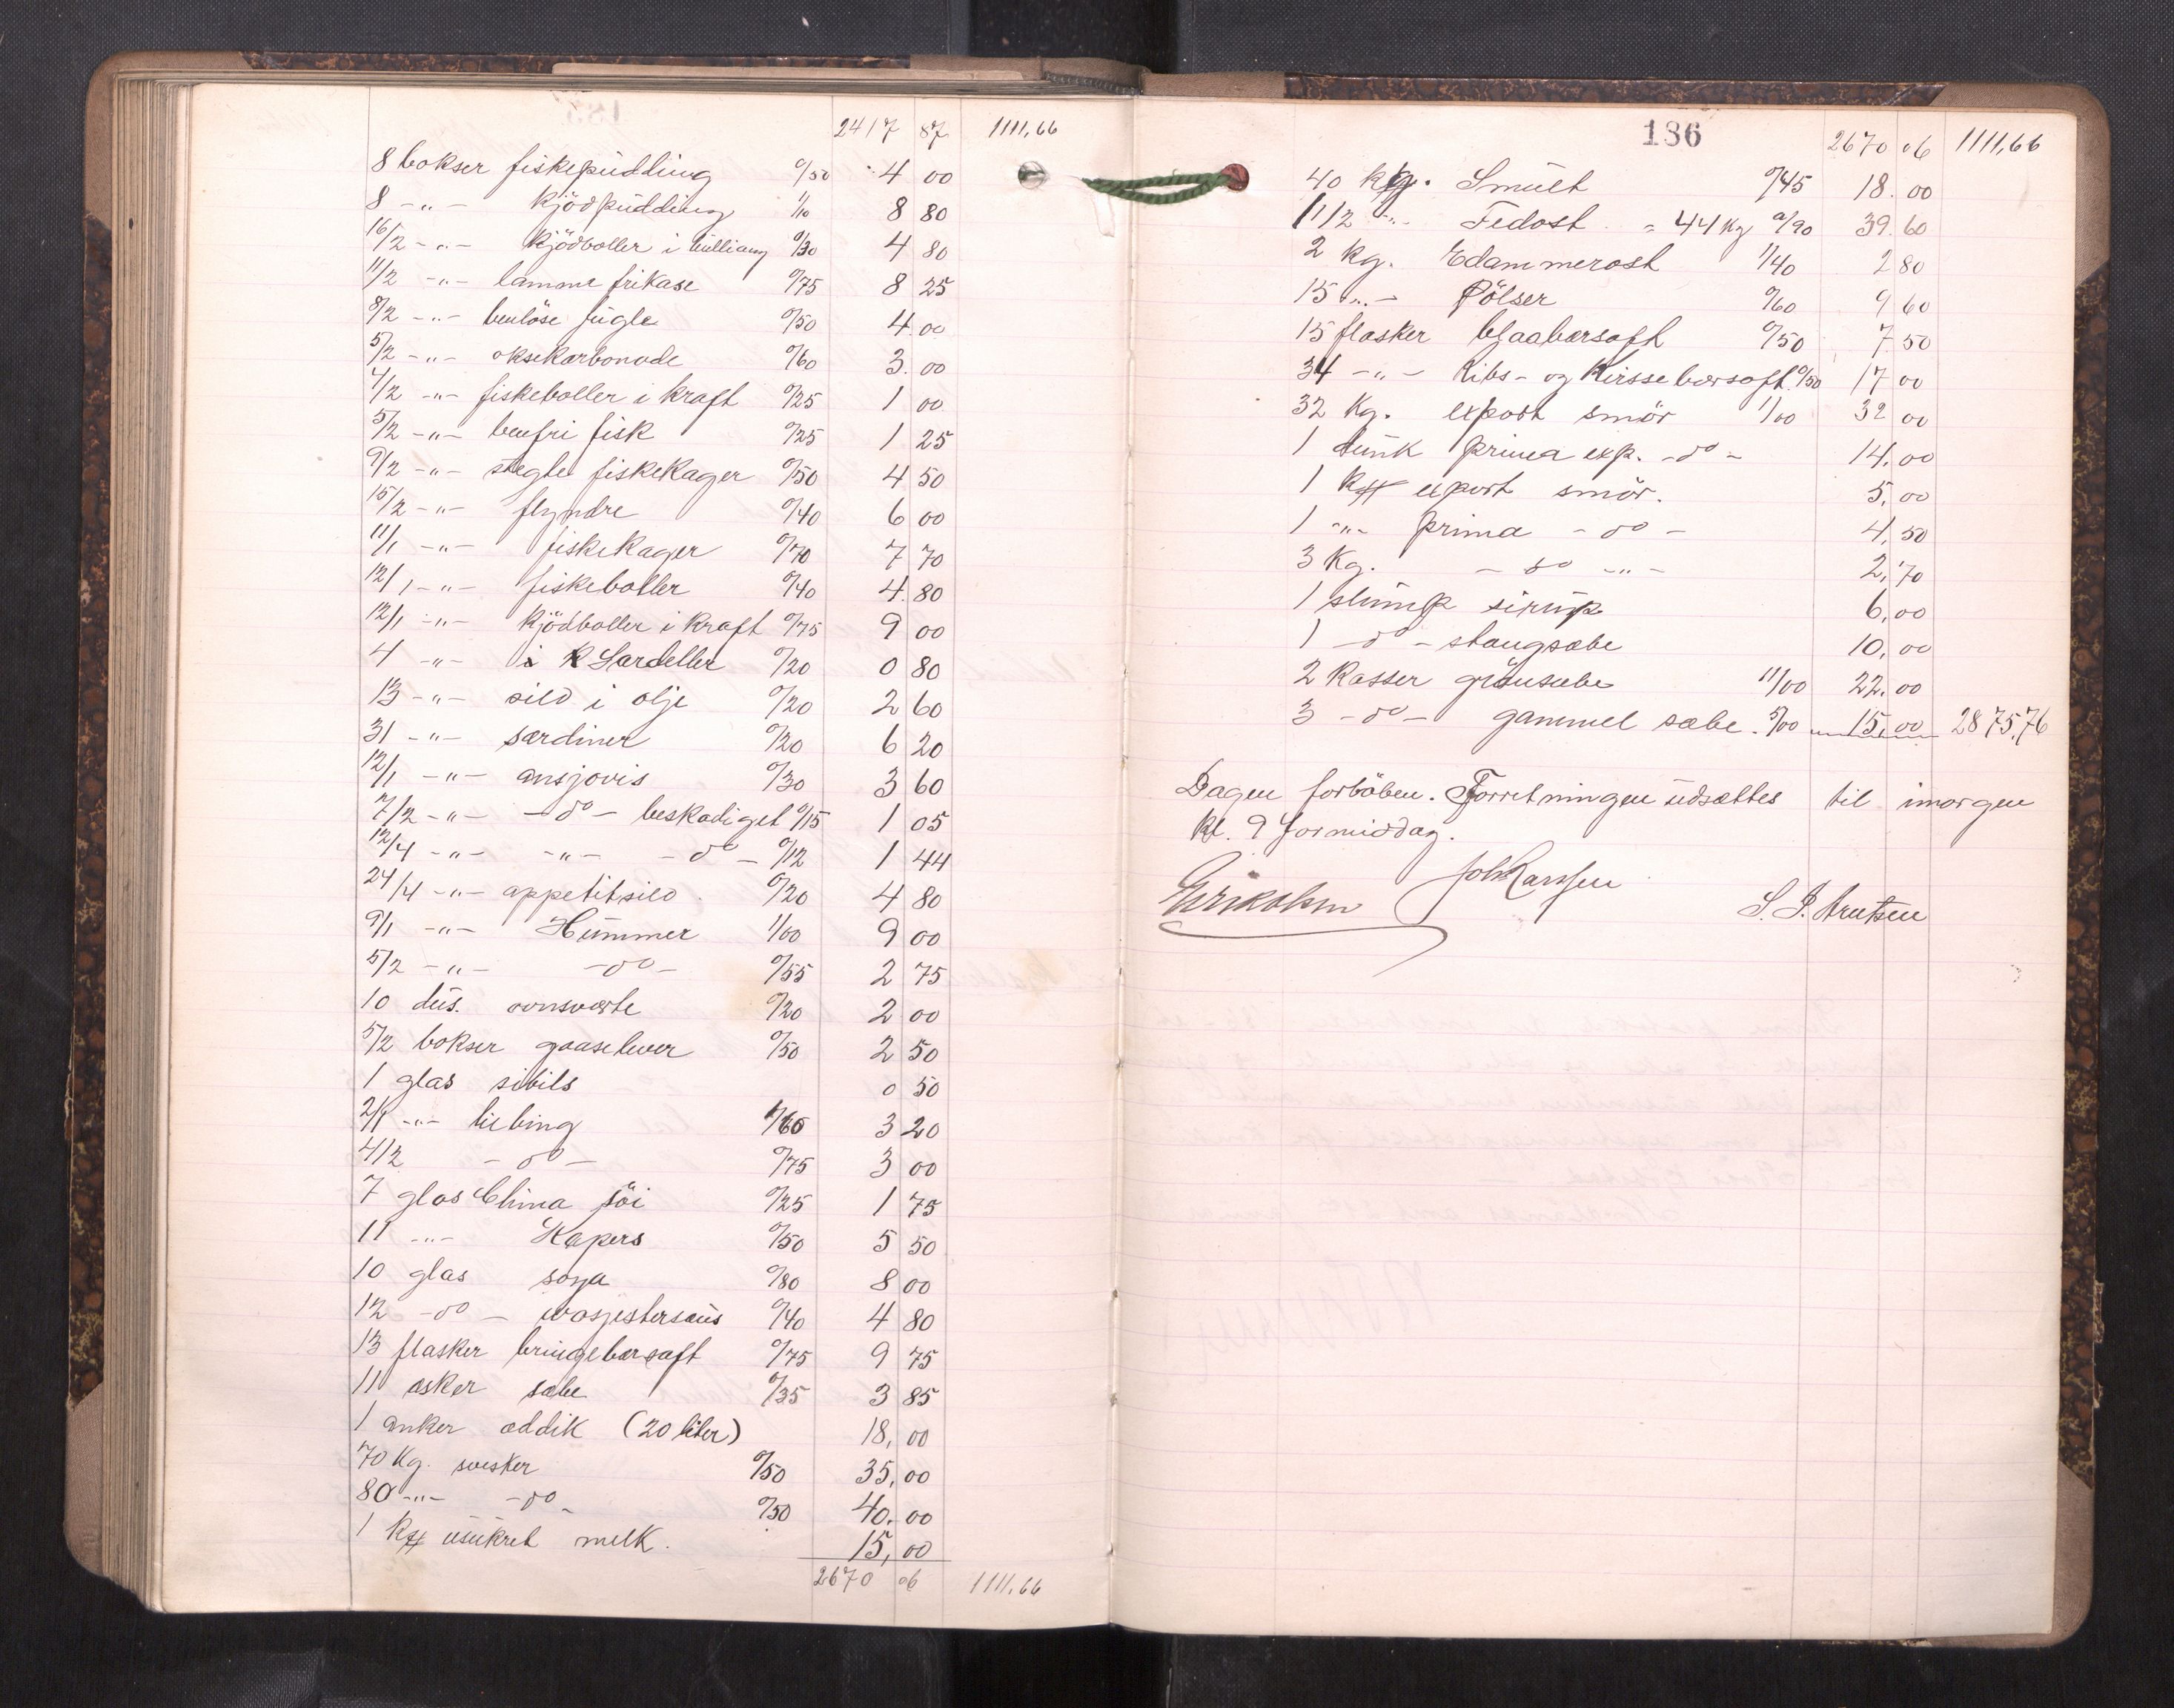 2417 87 1111,66
8 bokser fiskepudding 0/50 4 00
8 -"- kjödpudding 1/10 8 80
16/2 -"- kjödboller i 0/30 4 80
11/2 -"- lamme frikase 0/75 8 25
8/2 -"- benlöse fugle 0/50 4 00
5/2 -"- oksekarbonade 0/60 3 00
4/2 -"- fiskeboller i kraft 0/25 1 00
5/2 -"- benfri fisk 0/25 1 25
9/2 -"- stegte fiskekager 0/50 4 50
15/2 -"- flyndre 0/40 6 00
11/1 -"- fiskekager 0/70 7 70
12/1 -"- fiskeboller 0/40 4 80
12/1 -"- kjödboller i kraft 0/75 9 00
4 -"- Sardeller 0/20 0 80
13 -"- sild i olje 0/20 2 60
31 -"- sardiner 0/20 6 20
12/1 -"- ansjovis 0/30 3 60
7/2 -"- -do- beskadiget 0/15 1 05
12/4 -"- -"- -do- 0/12 1 44
24/4 -"- appetitsild 0/20 4 80
9/1 -"- Hummer 1/00 9 00
5/2 -"- -do- 0/55 2 75
10 dus. ovnsværte 0/20 2 00
5/2 bokser gaaselever 0/50 2 50
1 glas 0 50
2/1 -"- liebing 1/60 3 20
4/2 -do- 0/75 3 00
7 glas China söi 0/25 1 75
11 -"- Kapers 0/50 5 50
10 glas soya 0/80 8 00
12 -do- 0/40 4 80
13 flasker bringebærsaft 0/75 9 75
11 æsker sæbe 0/35 3 85
1 anker eddik (20 liter) 18,00
70 Kg. svesker 0/50 35,00
80 -"- -do- 0/50 40.00
1 Ks usukret melk. 15,00
2670 06 1111.66
186
2670 06 1111,66
40 kg. Smult 0/45 18.00
11/2 -"- Fedost = 44 kg 0/90 39.60
2 kg. Edammerost 1/40 2 80
15 -"- Pölser 0/60 9 60
15 flasker blaabærsaft 0/50 7 50
34 -"- Ribs- og Kirssebærsaft 0/50 17 00
32 Kg. export smör 1/00 32 00
1 dunk prima exp. -do- 14.00
1 Ks export smör. 5.00
1 -"- prima -do- 4,50
3 Kg. -do -"- 2,70
1 slump sirup 6,00
1 -do- stangsæbe 10,00
2 Kasser grönsæbe 11/00 22.00
3 -do- gammel sæbe. 5/00 15,00 2875,76
Dagen forlöben. Forretningen udsættes til imorgen
kl. 9 formiddag.
Joh Karlsen
Eriksen